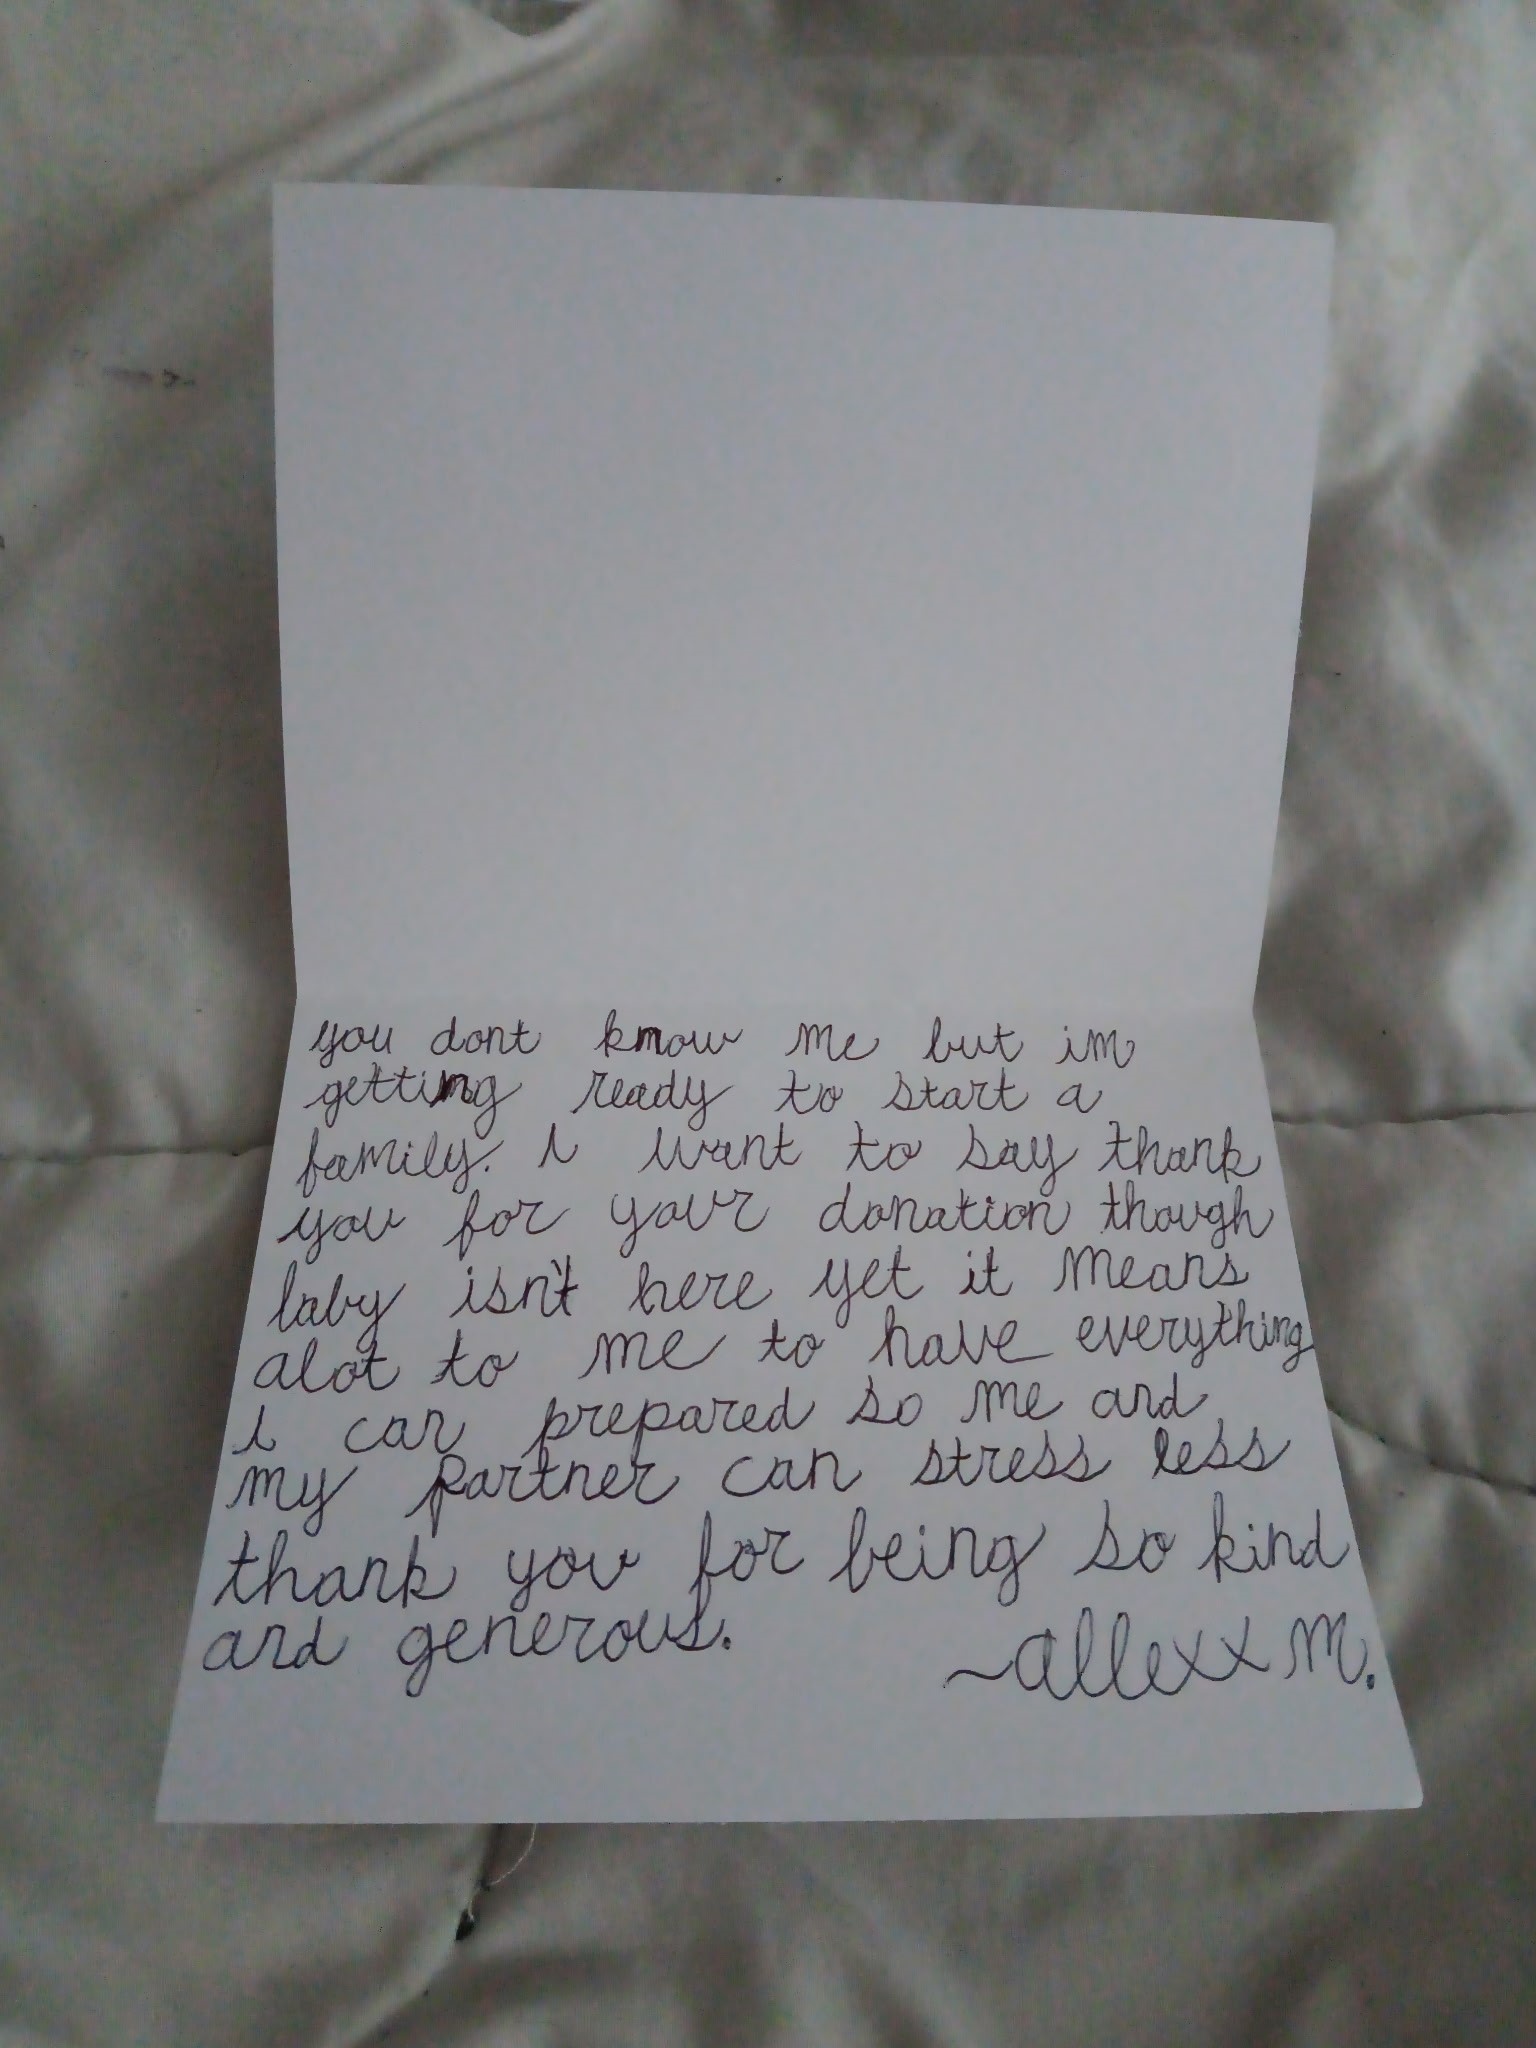 you dont know me but im
getting ready to start a
family. i want to say thank
you for your donation though
baby isn't here yet it means
alot to me to have everything
i can prepared so me and
my partner can stress less
thank you for being so kind
and generous.
~allexx M.